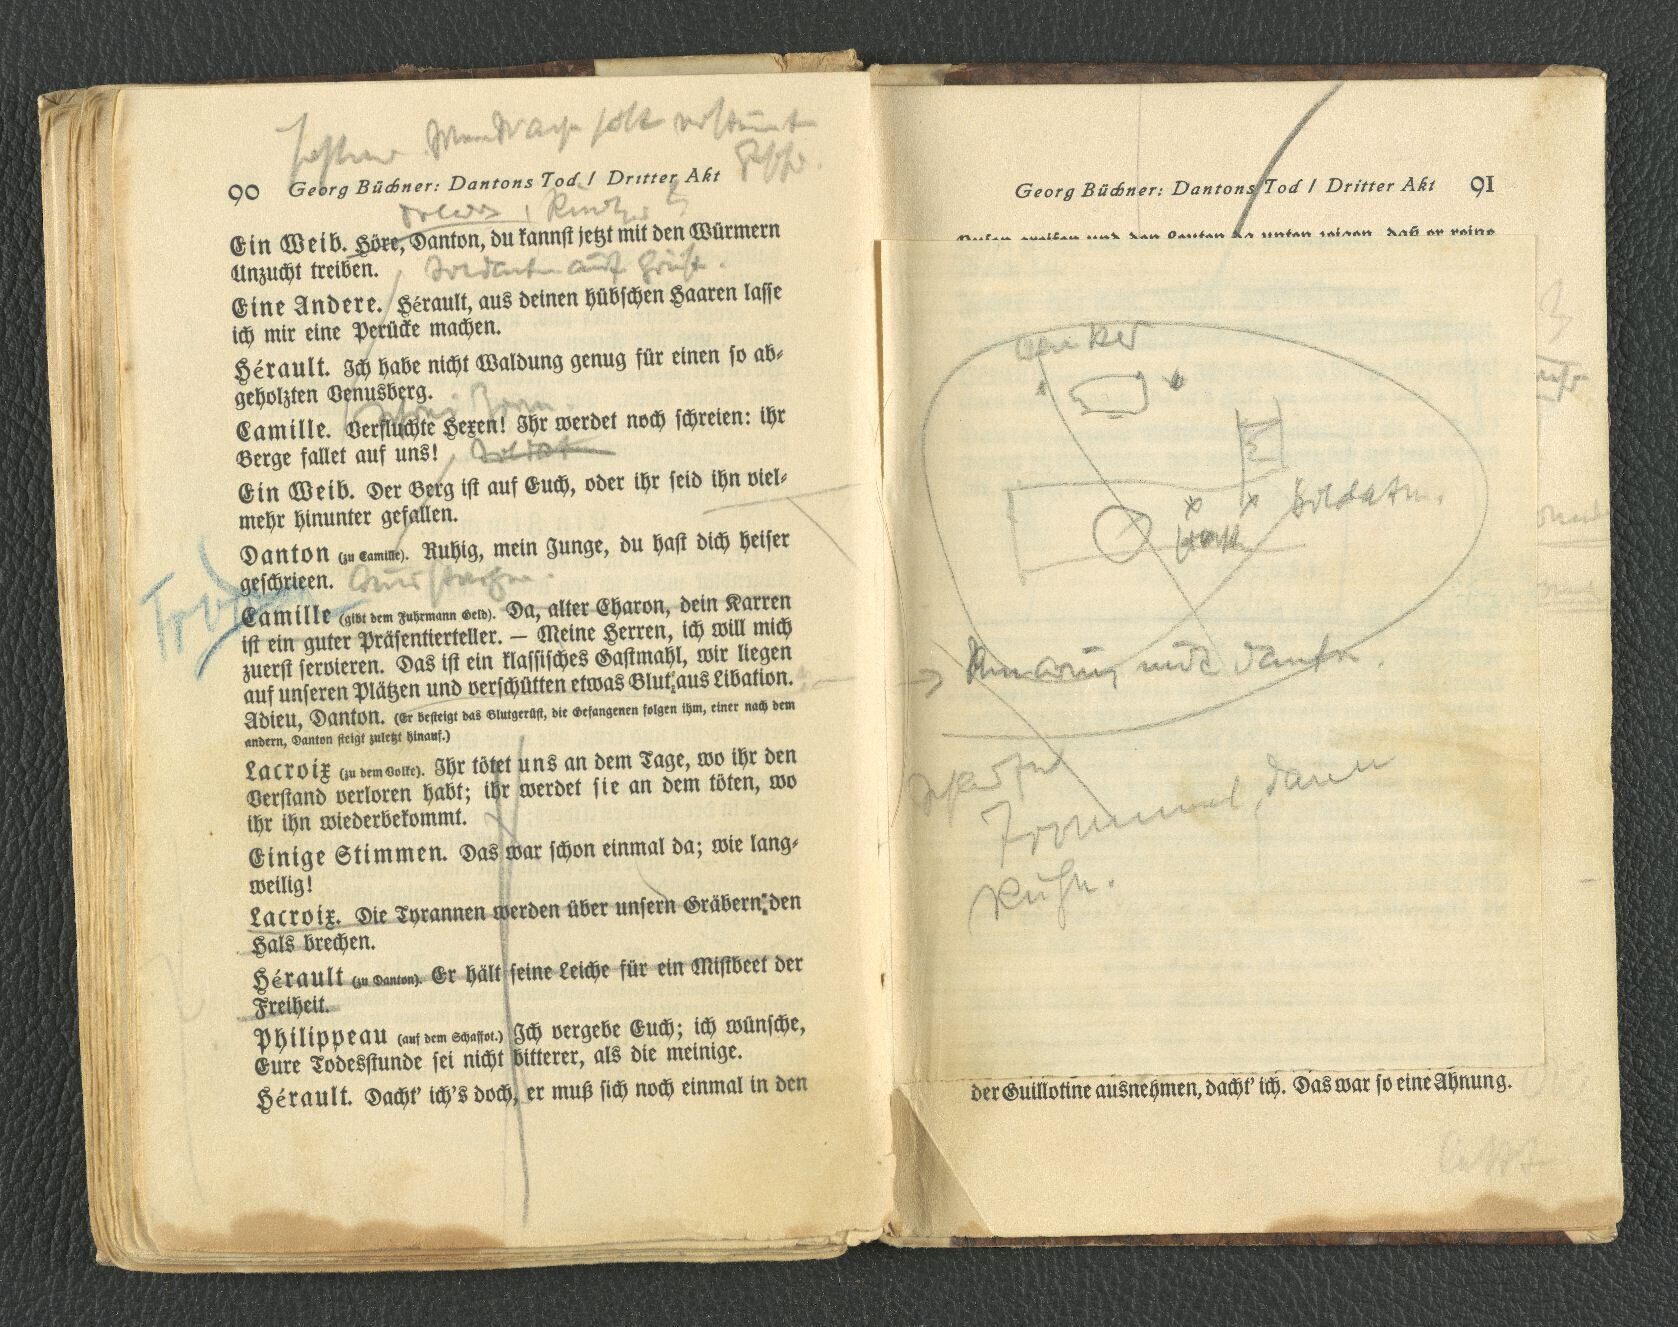 90 Georg Büchner: Dantons Tod / Dritter Akt
Ein Weib. Höre, Danton, du kannst jetzt mit den Würmern
Unzucht treiben.
Eine Andere. Hérault, aus deinen hübschen Haaren lasse
ich mir eine Perücke machen.
Hérault. Ich habe nicht Waldung genug für einen so ab-
geholzten Venusberg.
Camille. Verfluchte Hexen! Ihr werdet noch schreien: ihr
Berge fallet auf uns!
Soldat
Ein Weib. Der Berg ist auf Euch, oder ihr seid ihn viel-
mehr hinunter gefallen.
Danton (zu Camille). Ruhig, mein Junge, du hast dich heiser
geschrieen.
Camille (gibt dem Fuhrmann Geld). Da, alter Charon, dein Karren
ist ein guter Präsentierteller. — Meine Herren, ich will mich
zuerst servieren. Das ist ein klassisches Gastmahl, wir liegen
auf unseren Plätzen und verschütten etwas Blut aus Libation.
Adieu, Danton. (Er besteigt das Blutgerüst, die Gefangenen folgen ihm, einer nach dem
andern, Danton steigt zuletzt hinauf.)
Lacroix (zu dem Volke). Ihr tötet uns an dem Tage, wo ihr den
Verstand verloren habt; ihr werdet sie an dem töten, wo
ihr ihn wiederbekommt.
Einige Stimmen. Das war schon einmal da; wie lang-
weilig!
Lacroix. Die Tyrannen werden über unsern Gräbern den
Hals brechen.
Hérault (zu Danton). Er hält seine Leiche für ein Mistbeet der
Freiheit.
Philippeau (auf dem Schaffot.) Ich vergebe Euch; ich wünsche,
Eure Todesstunde sei nicht bitterer, als die meinige.
Hérault. Dacht' ich's doch, er muß sich noch einmal in den
Georg Büchner: Dantons Tod / Dritter Akt 91
Busen greifen und den Leuten da unten zeigen, daß er reine
Soldaten.
mit Danton.
Trommel, dann
Ruhe.
der Guillotine ausnehmen, dacht' ich. Das war so eine Ahnung.